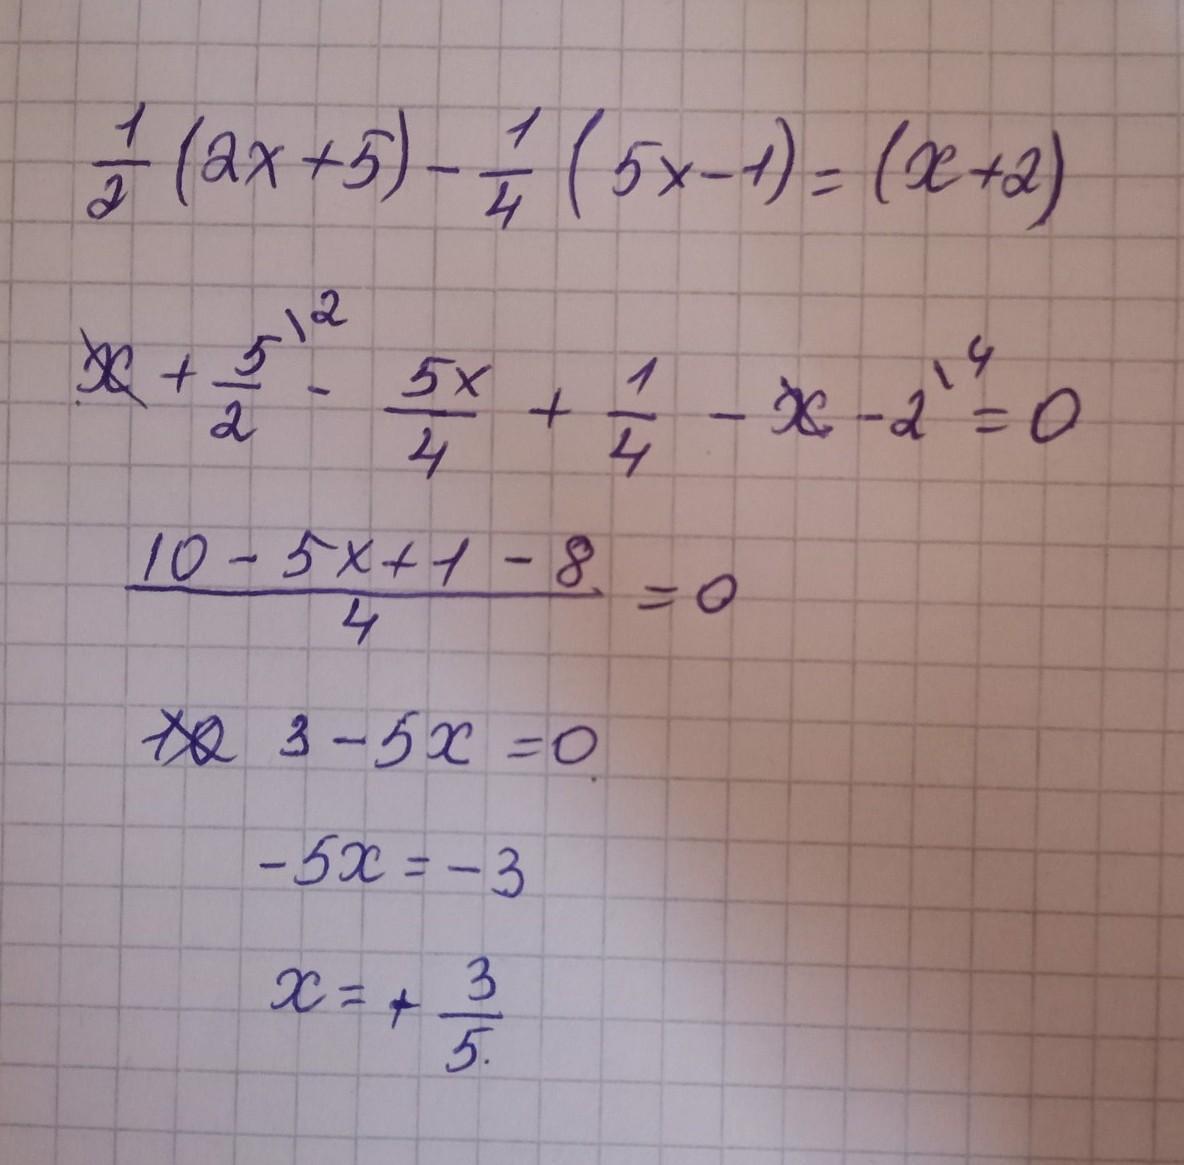 1/2 (2x+5) - 1/4 (5x-1) = (x+2)
x + 5/2 \2 - 5x/4 + 1/4 - x - 2 \4 = 0
(10 - 5x + 1 - 8)/4 = 0
3 - 5x = 0
-5x = -3
x = + 3/5.